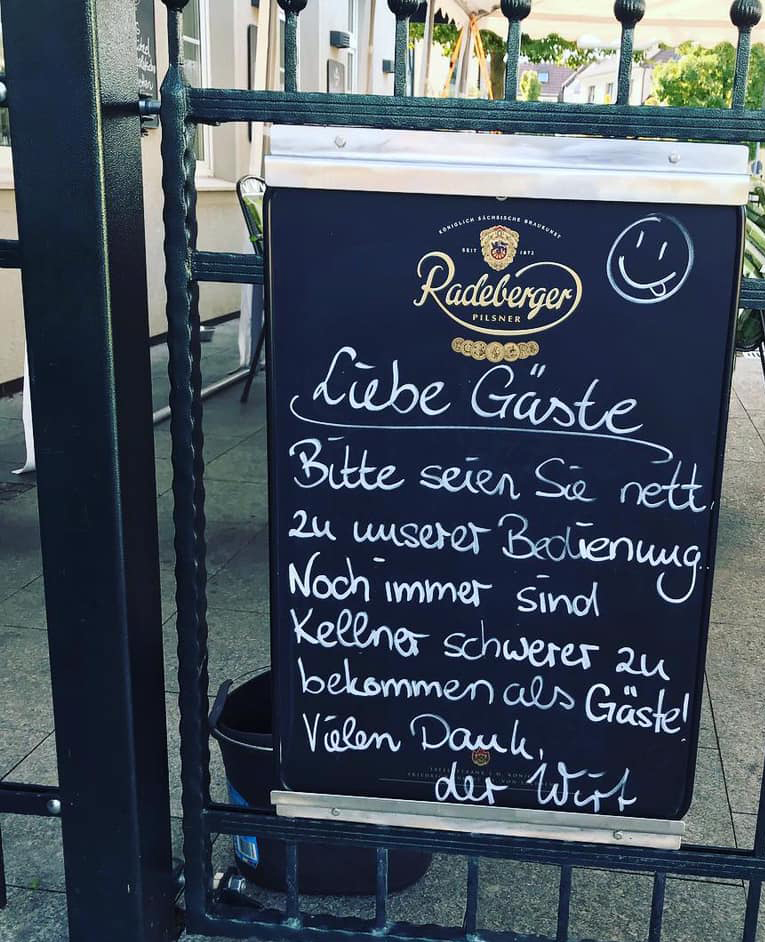 KÖNIGLICH SÄCHSISCHE BRAUKUNST
SEIT 1872
Radeberger
PILSNER
Liebe Gäste
Bitte seien Sie nett
zu unserer Bedienung.
Noch immer sind
Kellner schwerer zu
bekommen als Gäste!
Vielen Dank,
der Wirt